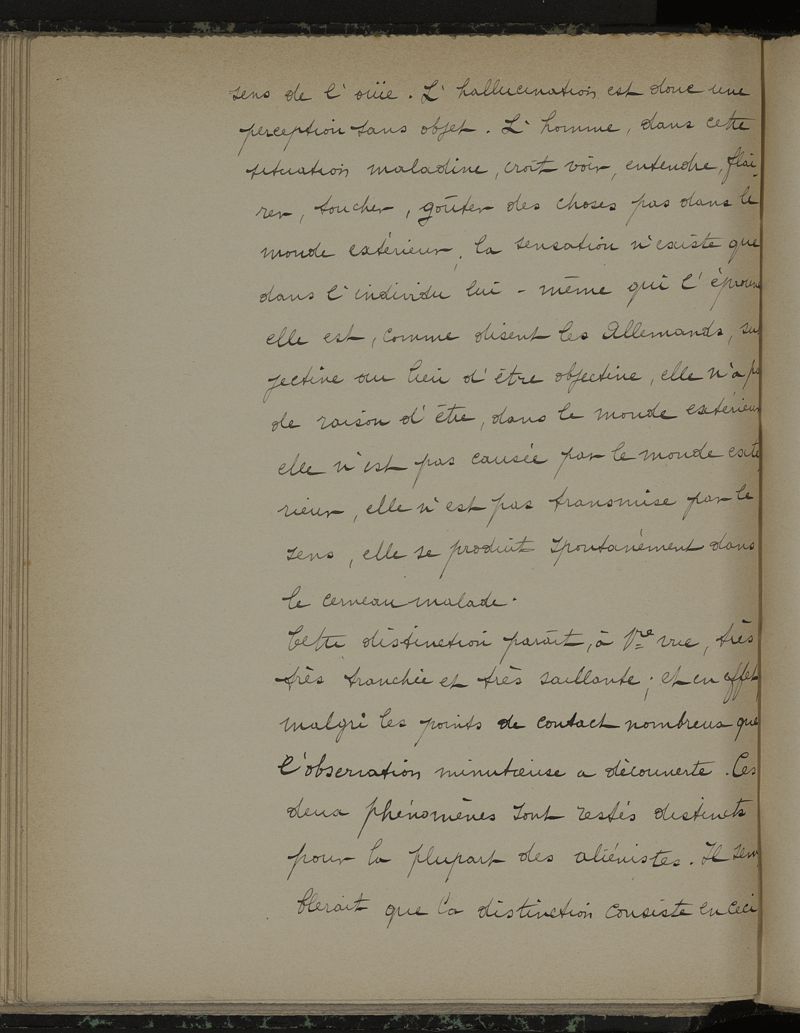 sens de l'oüie. L'hallucination est donc une
perception sans objet. L'homme, dans cette
situation maladive, croit voir, entendre, flai-
rer, toucher, goûter des choses pas dans le
monde extérieur, la sensation n'existe que
dans l'individu lui-même qui l'éprouve
elle est, comme disent les Allemands, sub
jective au lieu d'être objective, elle n'a pas
de raison d'être, dans le monde extérieur
elle n'est pas causée par le monde exté
rieur, elle n'est pas transmise par le
sens, elle se produit spontanément dans
le cerveau malade.
Cette distinction paraît, à 1re vue, très
très tranchée et très saillante; et en effet,
malgré les points de contact nombreux que
l'observation minutieuse a découverte. Ces
deux phénomènes sont restés distincts
pour la plupart des aliénistes. Il sem
blerait que la distinction consiste en ceci